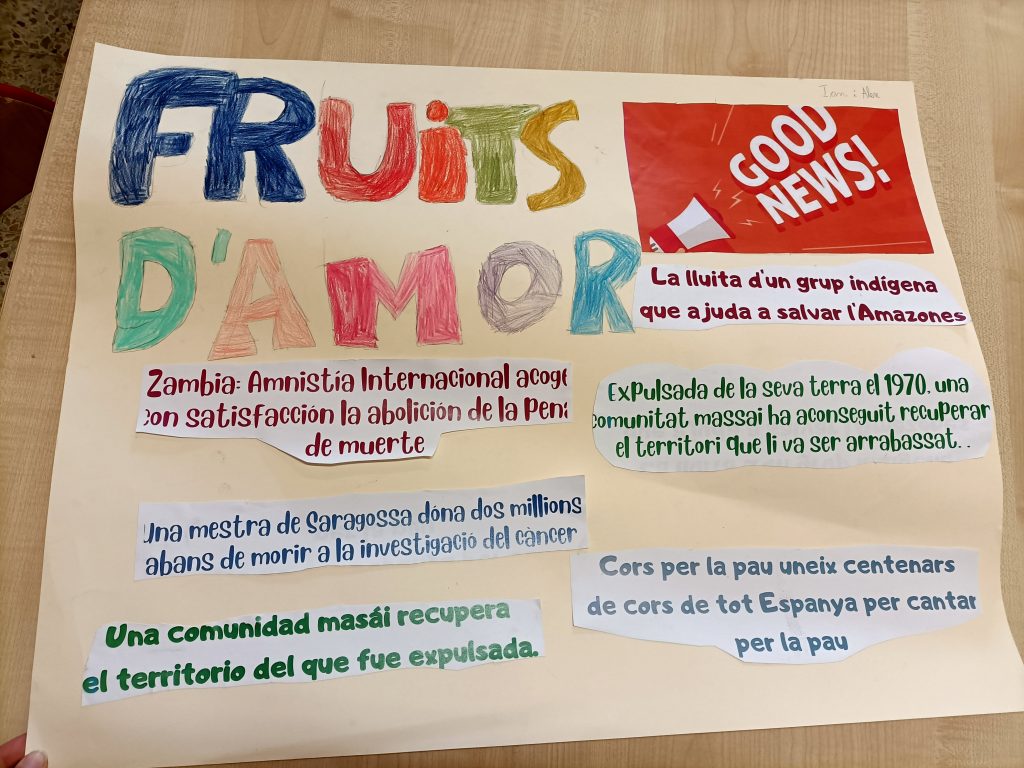 FRUiTS
D'AMOR
Ian i Aleix
GOOD
NEWS!
La lluita d'un grup indígena
que ajuda a salvar l'Amazones
Zambia: Amnistía Internacional acoge
con satisfacción la abolición de la Pena
de muerte
Expulsada de la seva terra el 1970, una
comunitat massai ha aconseguit recuperar
el territori que li va ser arrabassat..
Una mestra de Saragossa dóna dos millions
abans de morir a la investigació del càncer
Cors per la pau uneix centenars
de cors de tot Espanya per cantar
per la pau
Una comunidad masái recupera
el territorio del que fue expulsada.